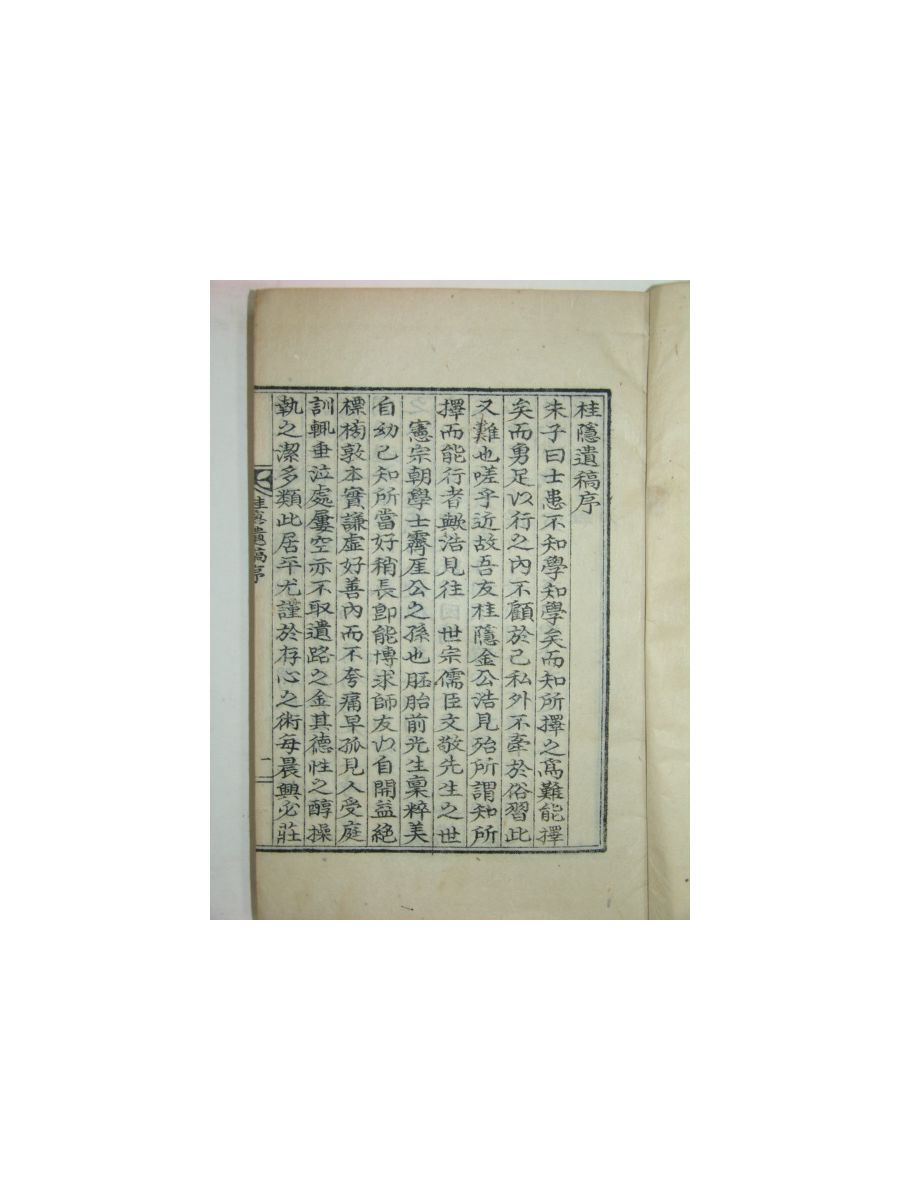 桂隱遺稿序
朱子曰士患不知學知學矣而知所擇之爲難能擇
矣而勇足以行之內不顧於己私外不牽於俗習此
又難也嗟乎近故吾友桂隱金公浩見殆所謂知所
擇而能行者歟浩見往 世宗儒臣文敬先生之世
憲宗朝學士霽厓公之孫也胚胎前光生稟粹美
自幼已知所當好稍長卽能博求師友以自開益絕
標榜敦本實謙虛好善內而不夸痛早孤見人受庭
訓輒垂泣處屢空亦不取遺路之金其德性之醇操
執之潔多類此居平尤謹於存心之術每晨興必莊
桂隱遺稿序
一